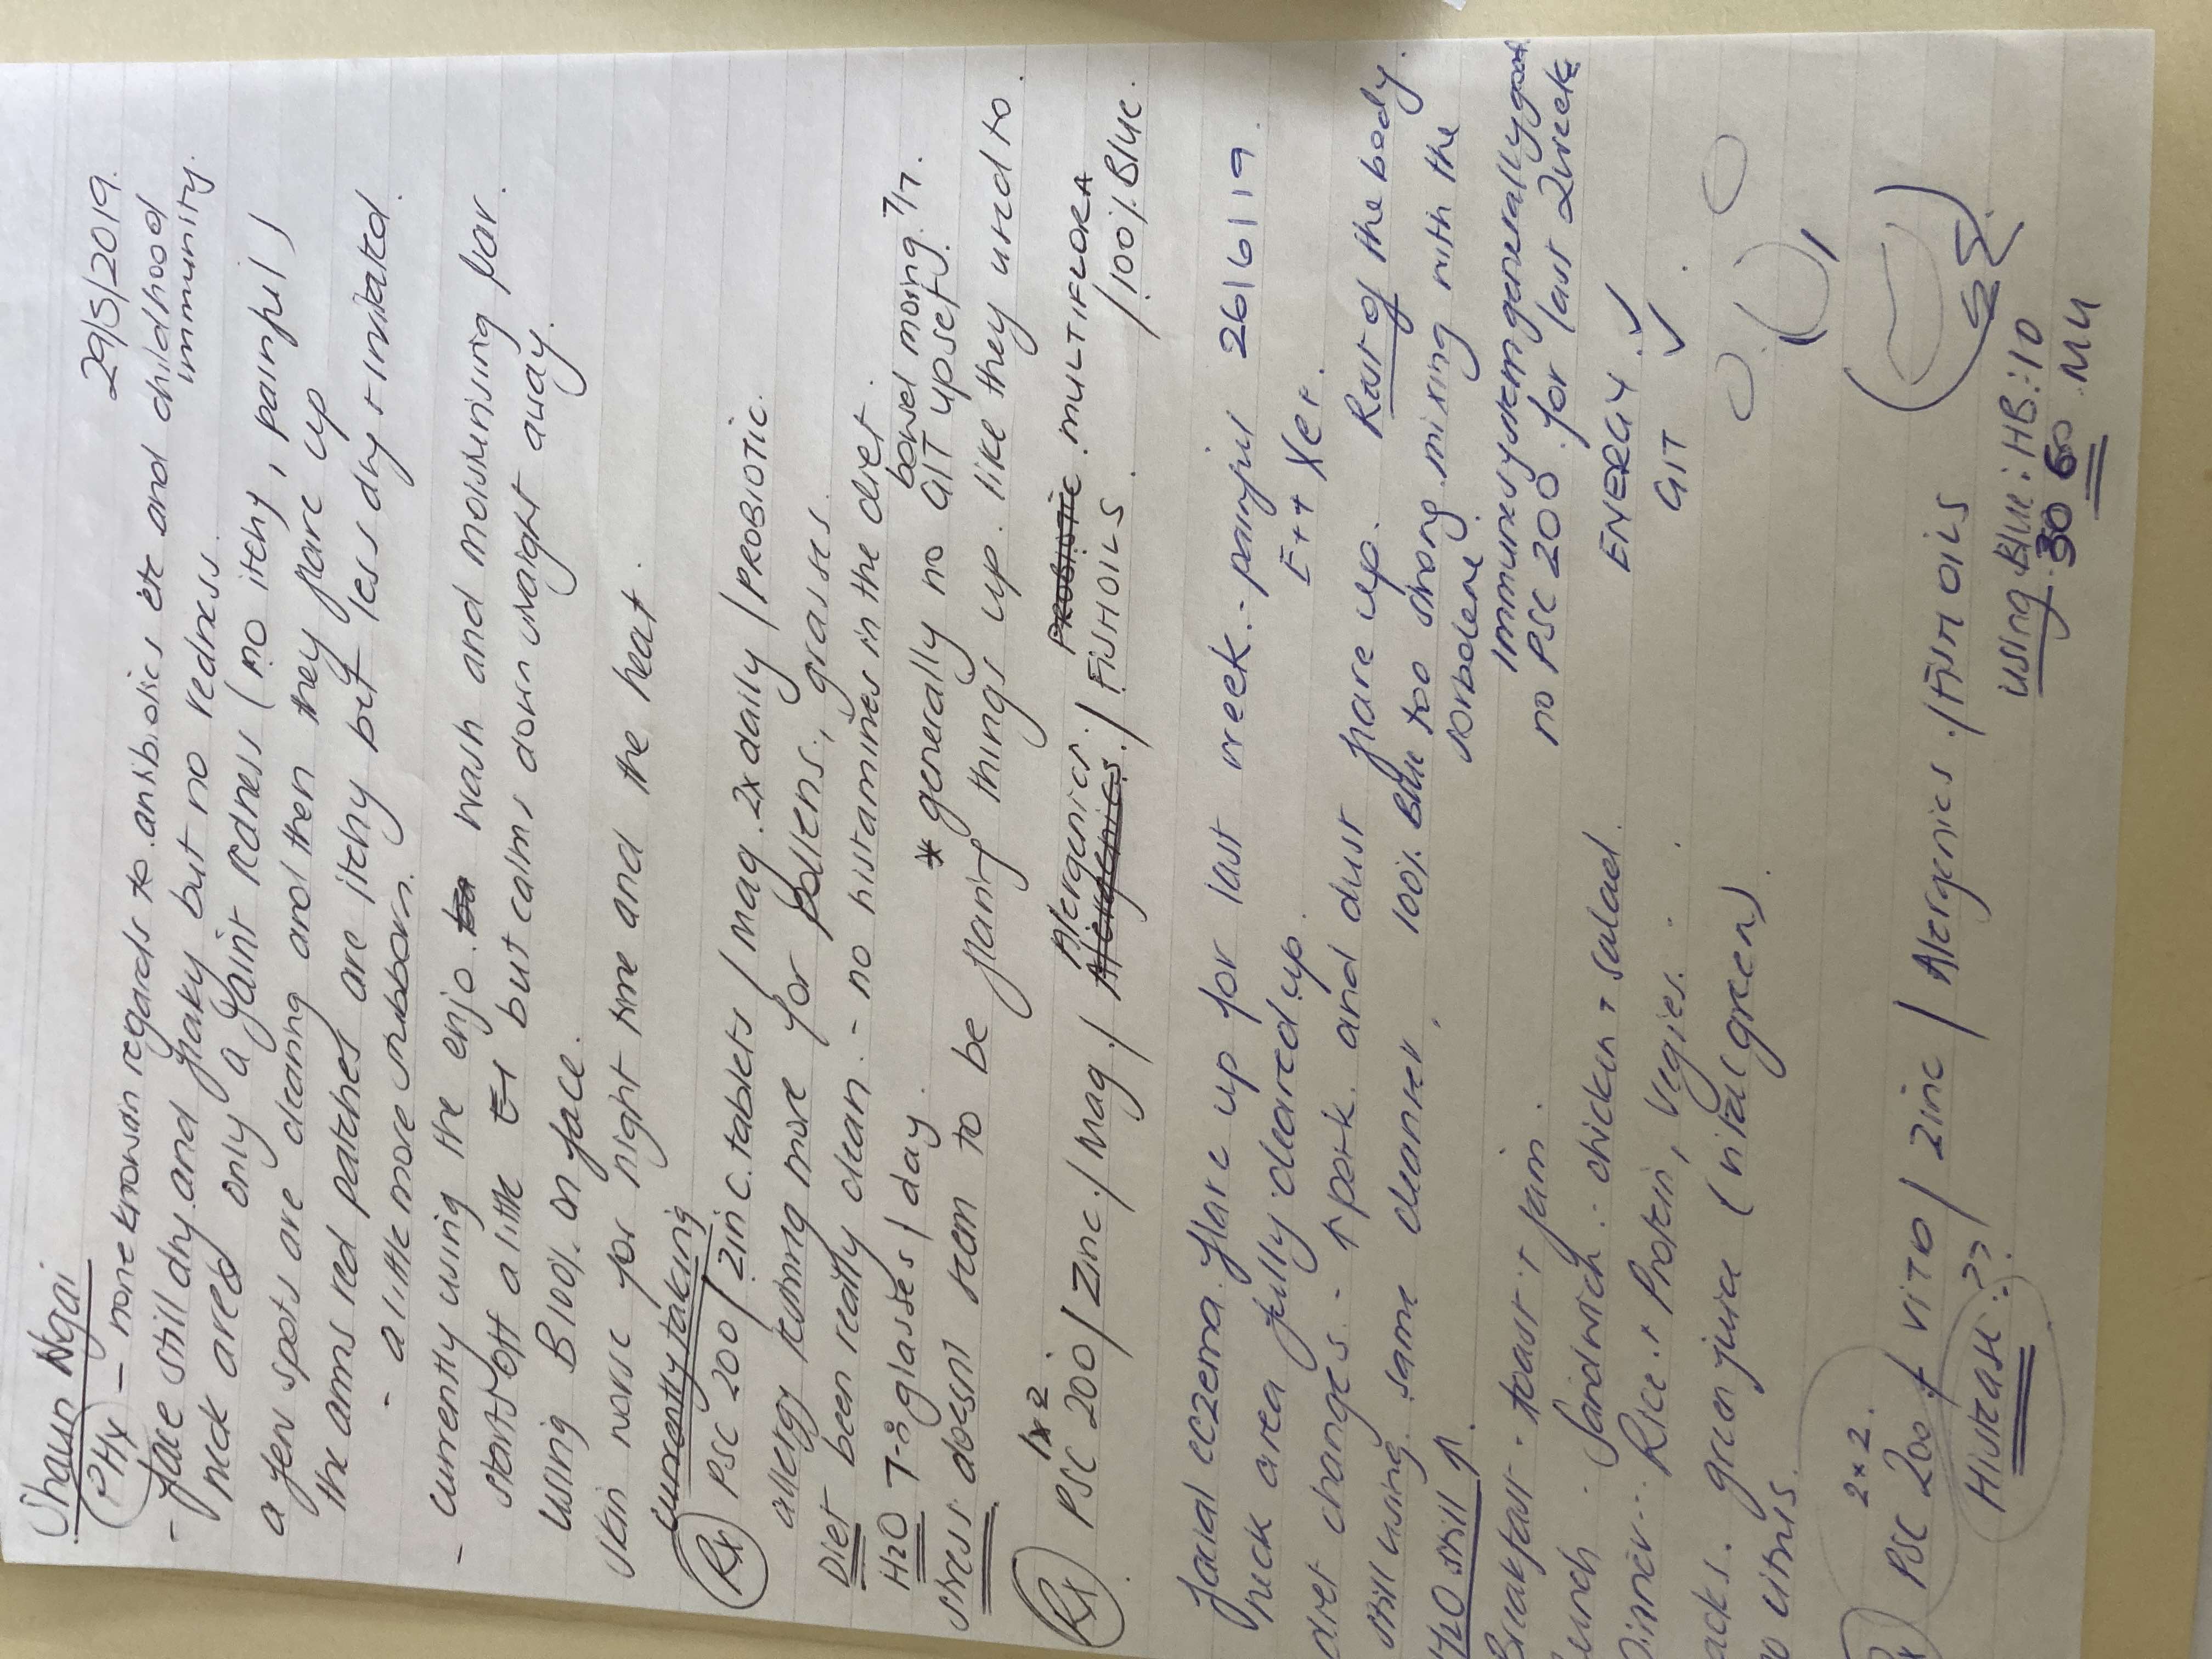 Shaun Ngai 29/5/2019.
PHx - none known regards to antibiotics etc and childhood immunity.
- face still dry and flaky but no redness.
neck area only a faint redness (no itchy, painful)
a few spots are clearing and then they flare up
the arms red patches are itchy but less dry + irritated.
- a little more stubborn.
- currently using the enjo wash and moisturising par.
starts off a little but calms down straight away.
using B100%. on face.
skin worse for night time and the heat.
currently taking
Rx PSC 200 / zinc. tablets / Mag. 2x daily / PROBIOTIC.
allergy testing more for pollens, grasses
Diet been really clean. - no histamines in the diet.
H2O 7-8 glasses / day. * generally no GIT upset. bowel moving 7/7.
stress doesnt seem to be flaring things up. like they used to.
1x2
Rx PSC 200 / Zinc. / Mag. / Allergenics. / FISHOILS. MULTIFLORA / 100% Blue.
facial eczema flare up for last week. - painful 26/6/19.
neck area fully cleared up. E++
diet changes. - ↑ pork. and dust flare up. Rest of the body.
still using same cleanser. 100%. Blue too strong mixing with the
sorbolene.
H2O still ↑. Immune system generally good
no PSC 200 for last 2 weeks
Breakfast - toast + jam. ENERGY. ✓
Sandwich. - chicken + salad. GIT ✓
Dinner - Rice + Protein, Vegies.
green juice (vital green).
2x2.
Rx PSC 200 + VIT D / Zinc / Allergenics. / Fish OILS
Histease. ?? using. Blue: HB: 10
30 60 MU